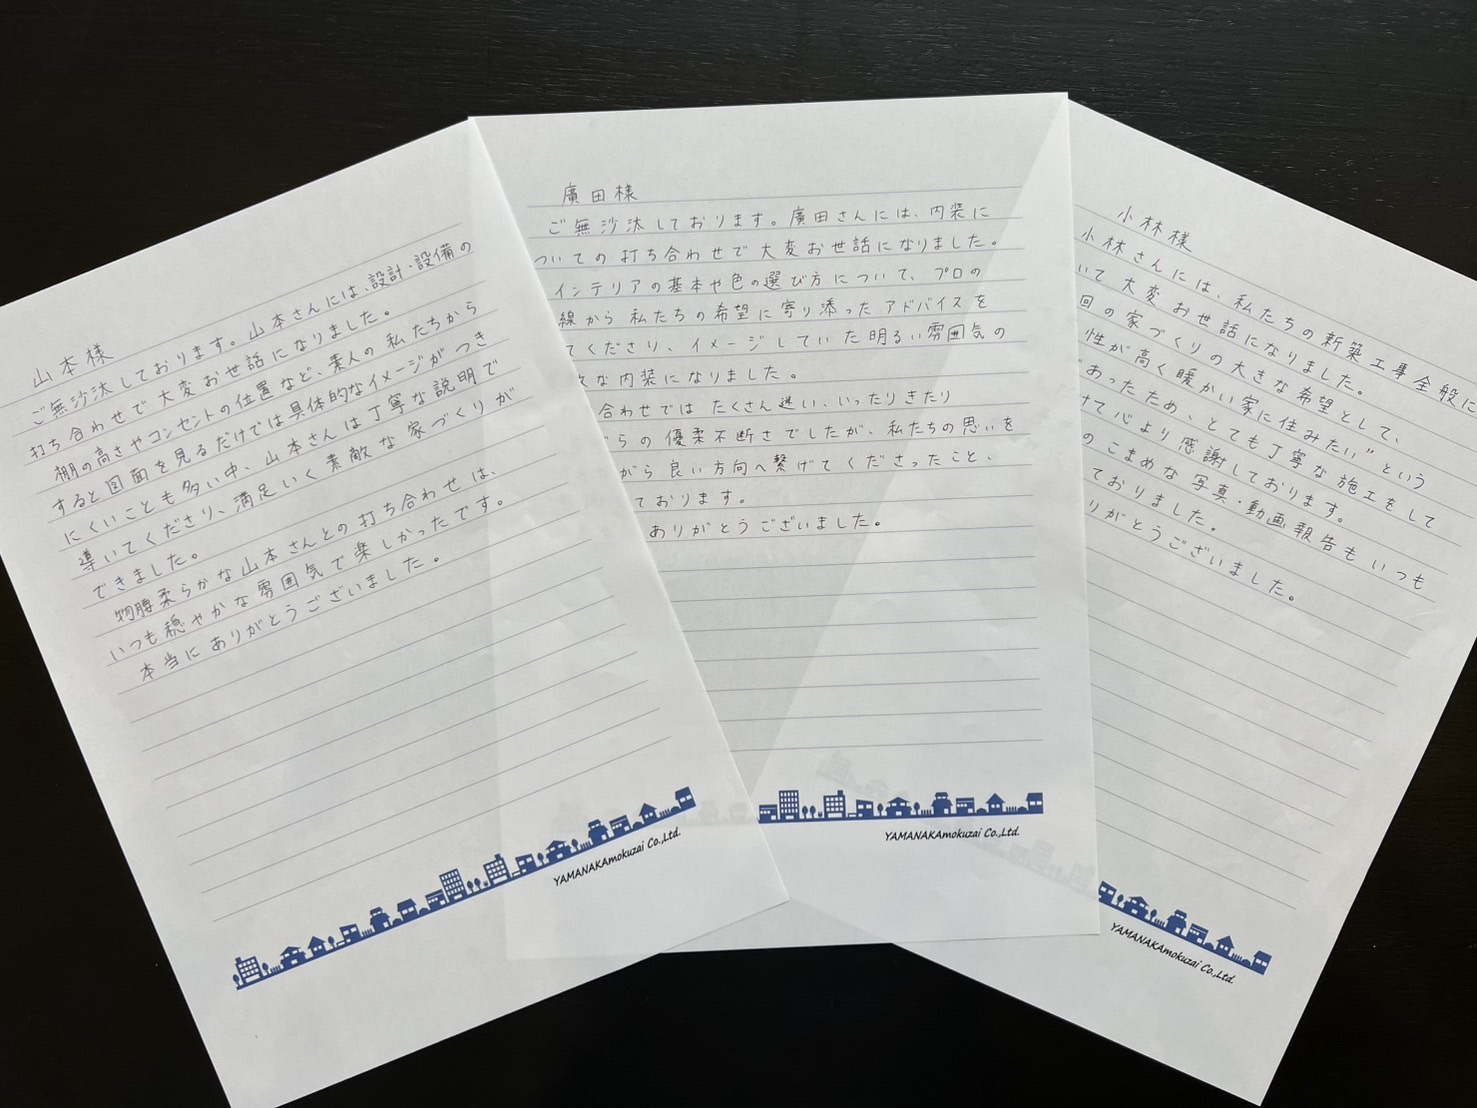 山本様
ご無沙汰しております。山本さんには、設計・設備の
打ち合わせで大変お世話になりました。
棚の高さやコンセントの位置など、素人の私たちから
すると図面を見るだけでは具体的なイメージがつき
にくいことも多い中、山本さんは丁寧な説明で
導いてくださり、満足いく素敵な家づくりが
できました。
物腰柔らかな山本さんとの打ち合わせは、
いつも穏やかな雰囲気で楽しかったです。
本当にありがとうございました。
YAMANAKAmokuzai Co.,Ltd.
廣田様
ご無沙汰しております。廣田さんには、内装に
ついての打ち合わせで大変お世話になりました。
インテリアの基本や色の選び方について、プロの
線から私たちの希望に寄り添ったアドバイスを
てくださり、イメージしていた明るい雰囲気の
な内装になりました。
合わせではたくさん迷い、いったりきたり
らの優柔不断さでしたが、私たちの思いを
がら良い方向へ繋げてくださったこと、
ております。
ありがとうございました。
YAMANAKAmokuzai Co.,Ltd.
小林様
小林さんには、私たちの新築工事全般に
いて大変お世話になりました。
回の家づくりの大きな希望として、
性が高く暖かい家に住みたい”という
あったため、とても丁寧な施工をして
けて心より感謝しております。
のこまめな写真・動画報告もいつも
ておりました。
りがとうございました。
YAMANAKAmokuzai Co.,Ltd.